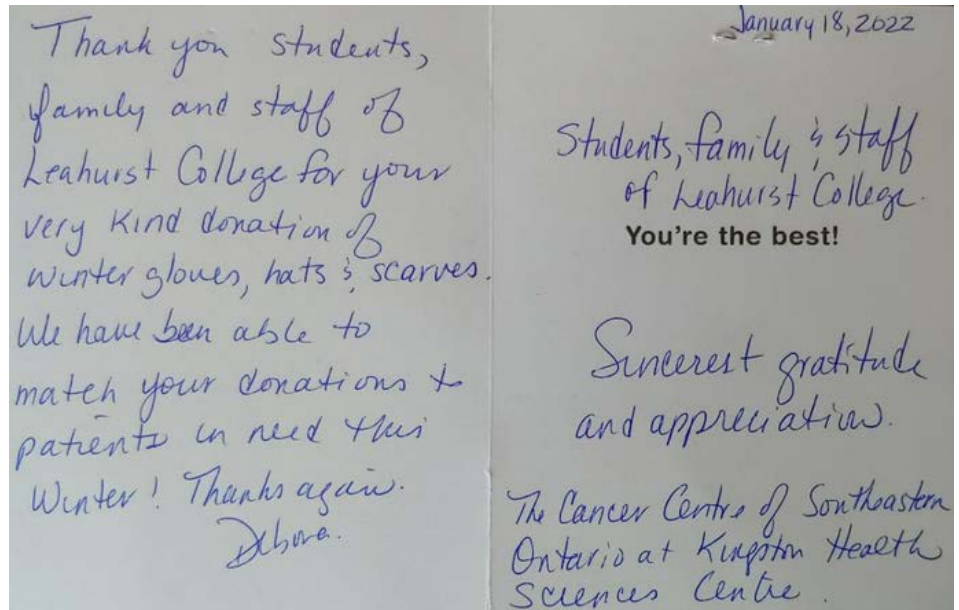 Thank you students,
family and staff of
Leahurst College for your
very kind donation of
winter gloves, hats & scarves.
We have been able to
match your donations to
patients in need this
Winter! Thanks again.
Debora.
January 18, 2022
Students, family & staff
of Leahurst College.
You're the best!
Sincerest gratitude
and appreciation.
The Cancer Centre of Southeastern
Ontario at Kingston Health
Sciences Centre.